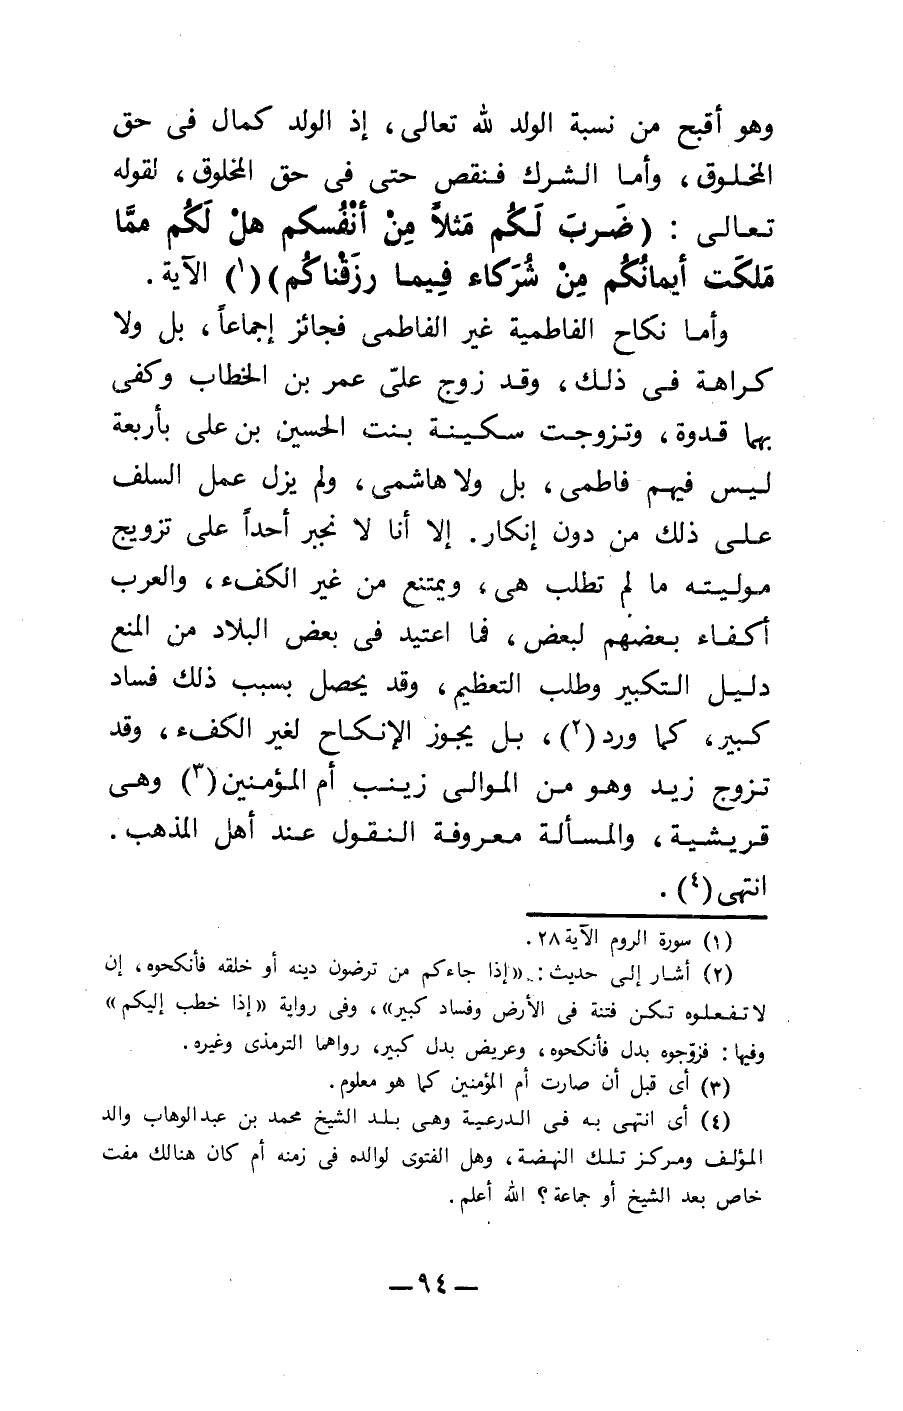 وهو أقبح من نسبة الولد لله تعالى، إذ الولد كمال فى حق
المخلوق، وأما الشرك فنقص حتى فى حق المخلوق، لقوله
تعالى : (ضَربَ لَكُم مَثلاً مِنْ أنْفُسكم هلْ لَكُم ممَّا
مَلكَت أيمانُكُم مِنْ شُرَكاء فِيما رزَقْناكُم)(١) الآية.
وأما نكاح الفاطمية غير الفاطمى فجائز إجماعاً، بل ولا
كراهة فى ذلك، وقد زوج علىّ عمر بن الخطاب وكفى
بها قدوة، وتزوجت سكينة بنت الحسين بن على بأربعة
ليس فيهم فاطمى، بل ولا هاشمى، ولم يزل عمل السلف
على ذلك من دون إنكار. إلا أنا لا نجبر أحداً على تزويج
موليته ما لم تطلب هى، ويمتنع من غير الكفء، والعرب
أكفاء بعضهم لبعض، فما اعتيد فى بعض البلاد من المنع
دليل التكبير وطلب التعظيم، وقد يحصل بسبب ذلك فساد
كبير، كما ورد(٢)، بل يجوز الإنكاح لغير الكفء، وقد
تزوج زيد وهو من الموالى زينب أم المؤمنين(٣) وهى
قريشية، والمسألة معروفة النقول عند أهل المذهب.
انتهى(٤).
(١) سورة الروم الآية ٢٨.
(٢) أشار إلى حديث: «إذا جاءكم من ترضون دينه أو خلقه فأنكحوه، إن
لا تفعلوه تكن فتنة فى الأرض وفساد كبير»، وفى رواية «إذا خطب إليكم»
وفيها : فزوّجوه بدل فأنكحوه، وعريض بدل كبير، رواهما الترمذى وغيره.
(٣) أى قبل أن صارت أم المؤمنين كما هو معلوم.
(٤) أى انتهى به فى الدرعية وهى بلد الشيخ محمد بن عبدالوهاب والد
المؤلف ومركز تلك النهضة، وهل الفتوى لوالده فى زمنه أم كان هنالك مفت
خاص بعد الشيخ أو جماعة؟ الله أعلم.
— ٩٤ —